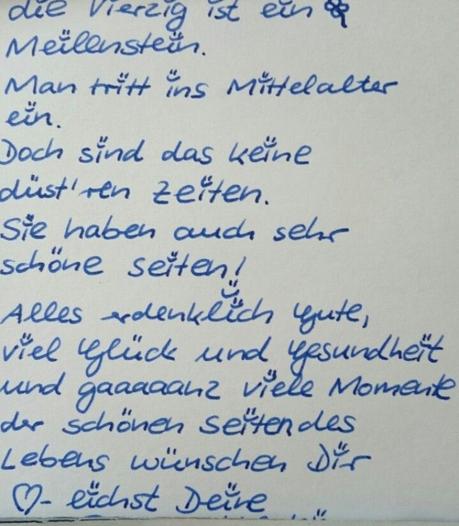 die Vierzig ist ein
Meilenstein.
Man tritt ins Mittelalter
ein.
Doch sind das keine
düst'ren Zeiten.
Sie haben auch sehr
schöne Seiten!
Alles erdenklich Gute,
viel Glück und Gesundheit
und gaaaaanz viele Momente
der schönen Seiten des
Lebens wünschen Dir
♡-lichst Deine